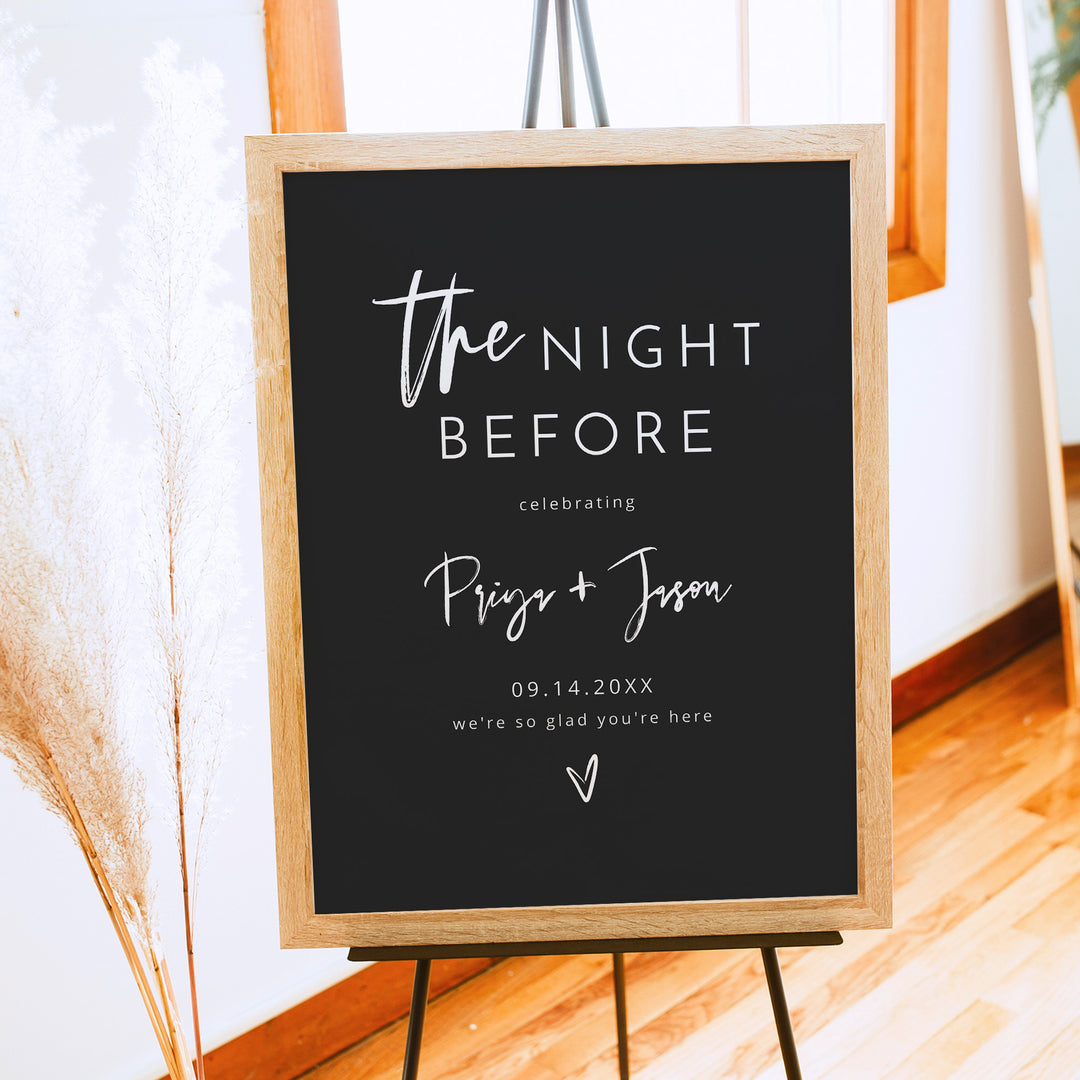 the NIGHT
BEFORE
celebrating
Priya + Jason
09.14.20XX
we're so glad you're here